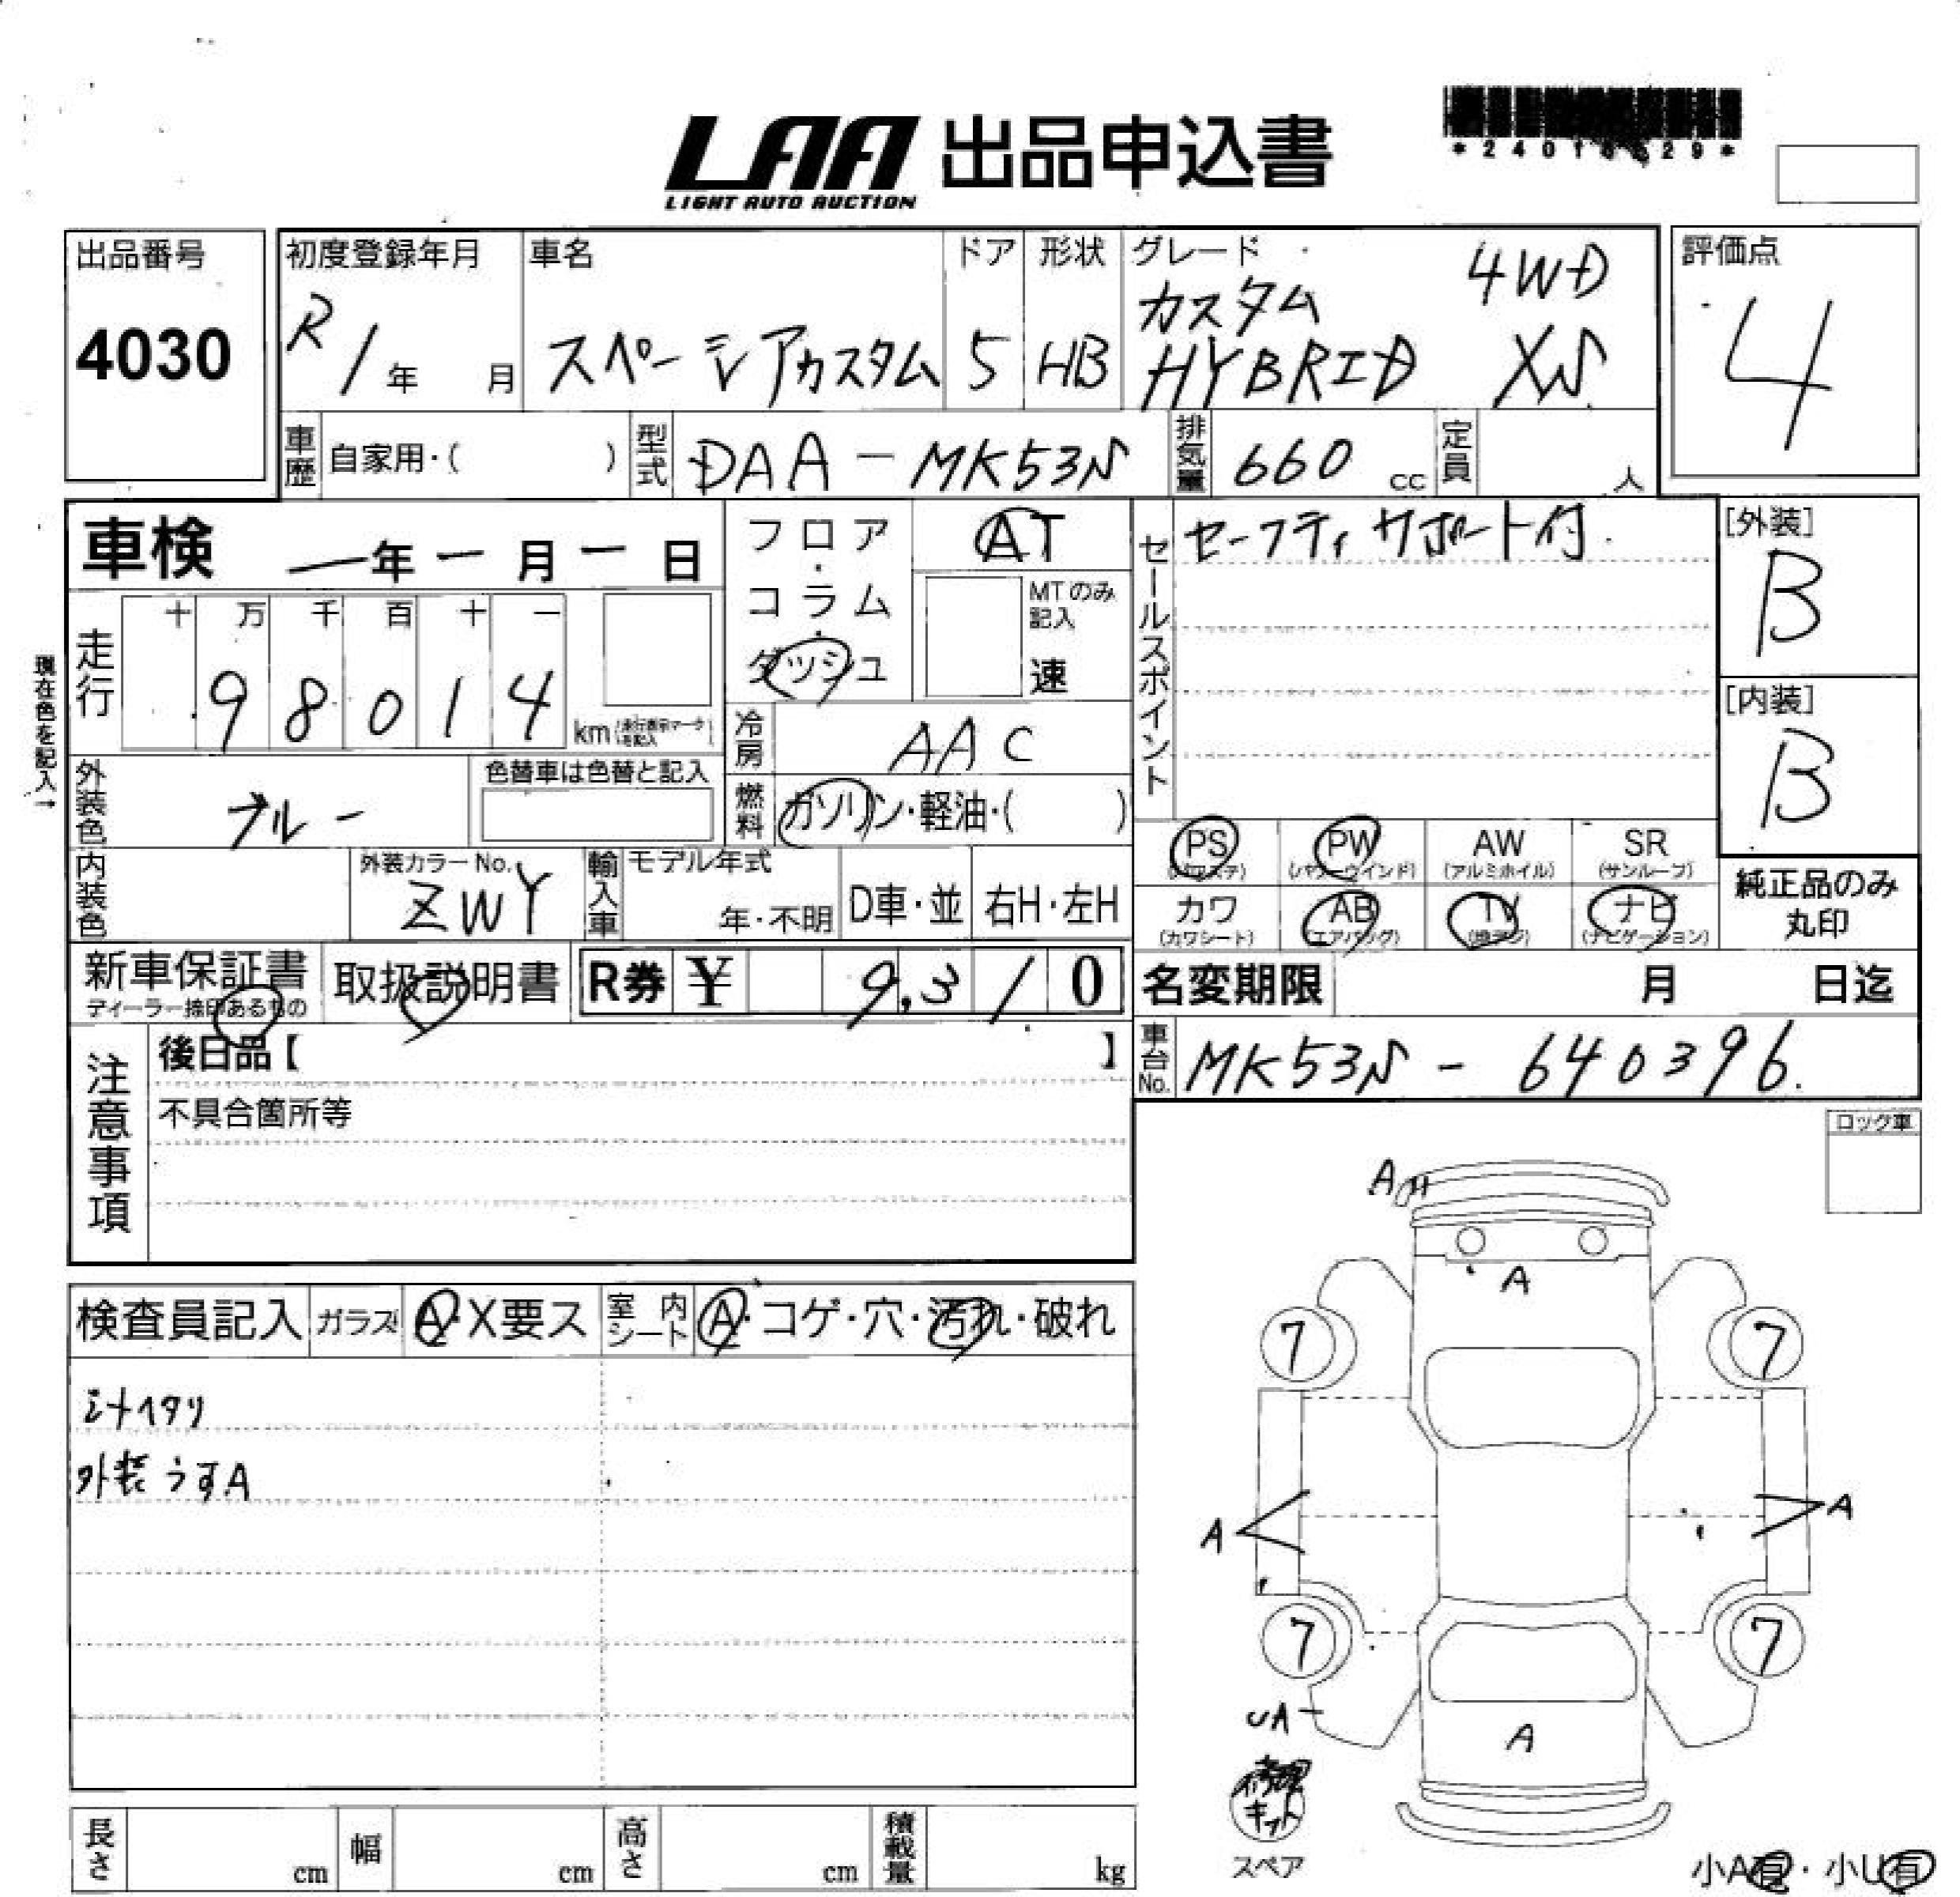 LAA 出品申込書
LIGHT AUTO AUCTION
出品番号
4030
初度登録年月
R1年 月
車名
スペーシアカスタム
ドア
5
形状
HB
グレード
カスタム 4WD
HYBRID XS
評価点
4
車歴 自家用・( )
型式 DAA-MK53S
排気量 660 cc
定員 人
車検 ー年ー月ー日
フロア・コラム・ダッシュ
AT
MTのみ記入
速
セールスポイント
セーフティサポート付
[外装]
B
[内装]
B
現在色を記入→
走行
十 万 千 百 十 一
9 8 0 1 4
km (走行表示マークを記入)
冷房 AAC
外装色 ブルー
色替車は色替と記入
燃料 ガソリン・軽油・( )
内装色
外装カラーNo.
ZWY
輸入車 モデル年式
年・不明
D車・並 右H・左H
PS (パワステ)
PW (パワーウインド)
AW (アルミホイル)
SR (サンルーフ)
カワ (カワシート)
AB (エアバッグ)
TV (地デジ)
ナビ (ナビゲーション)
純正品のみ
丸印
新車保証書
ディーラー捺印あるもの
取扱説明書
R券 ¥ 9,310
名変期限 月 日迄
車台No. MK53S-640396.
注意事項
後日品【 】
不具合箇所等
ロック車
検査員記入 ガラス A・X要ス 室内シート A・コゲ・穴・汚れ・破れ
外装うすA
A
A
7 7
A A
7 7
UA
A
修理
キット
スペア
長さ cm 幅 cm 高さ cm 積載量 kg
小A有・小U有